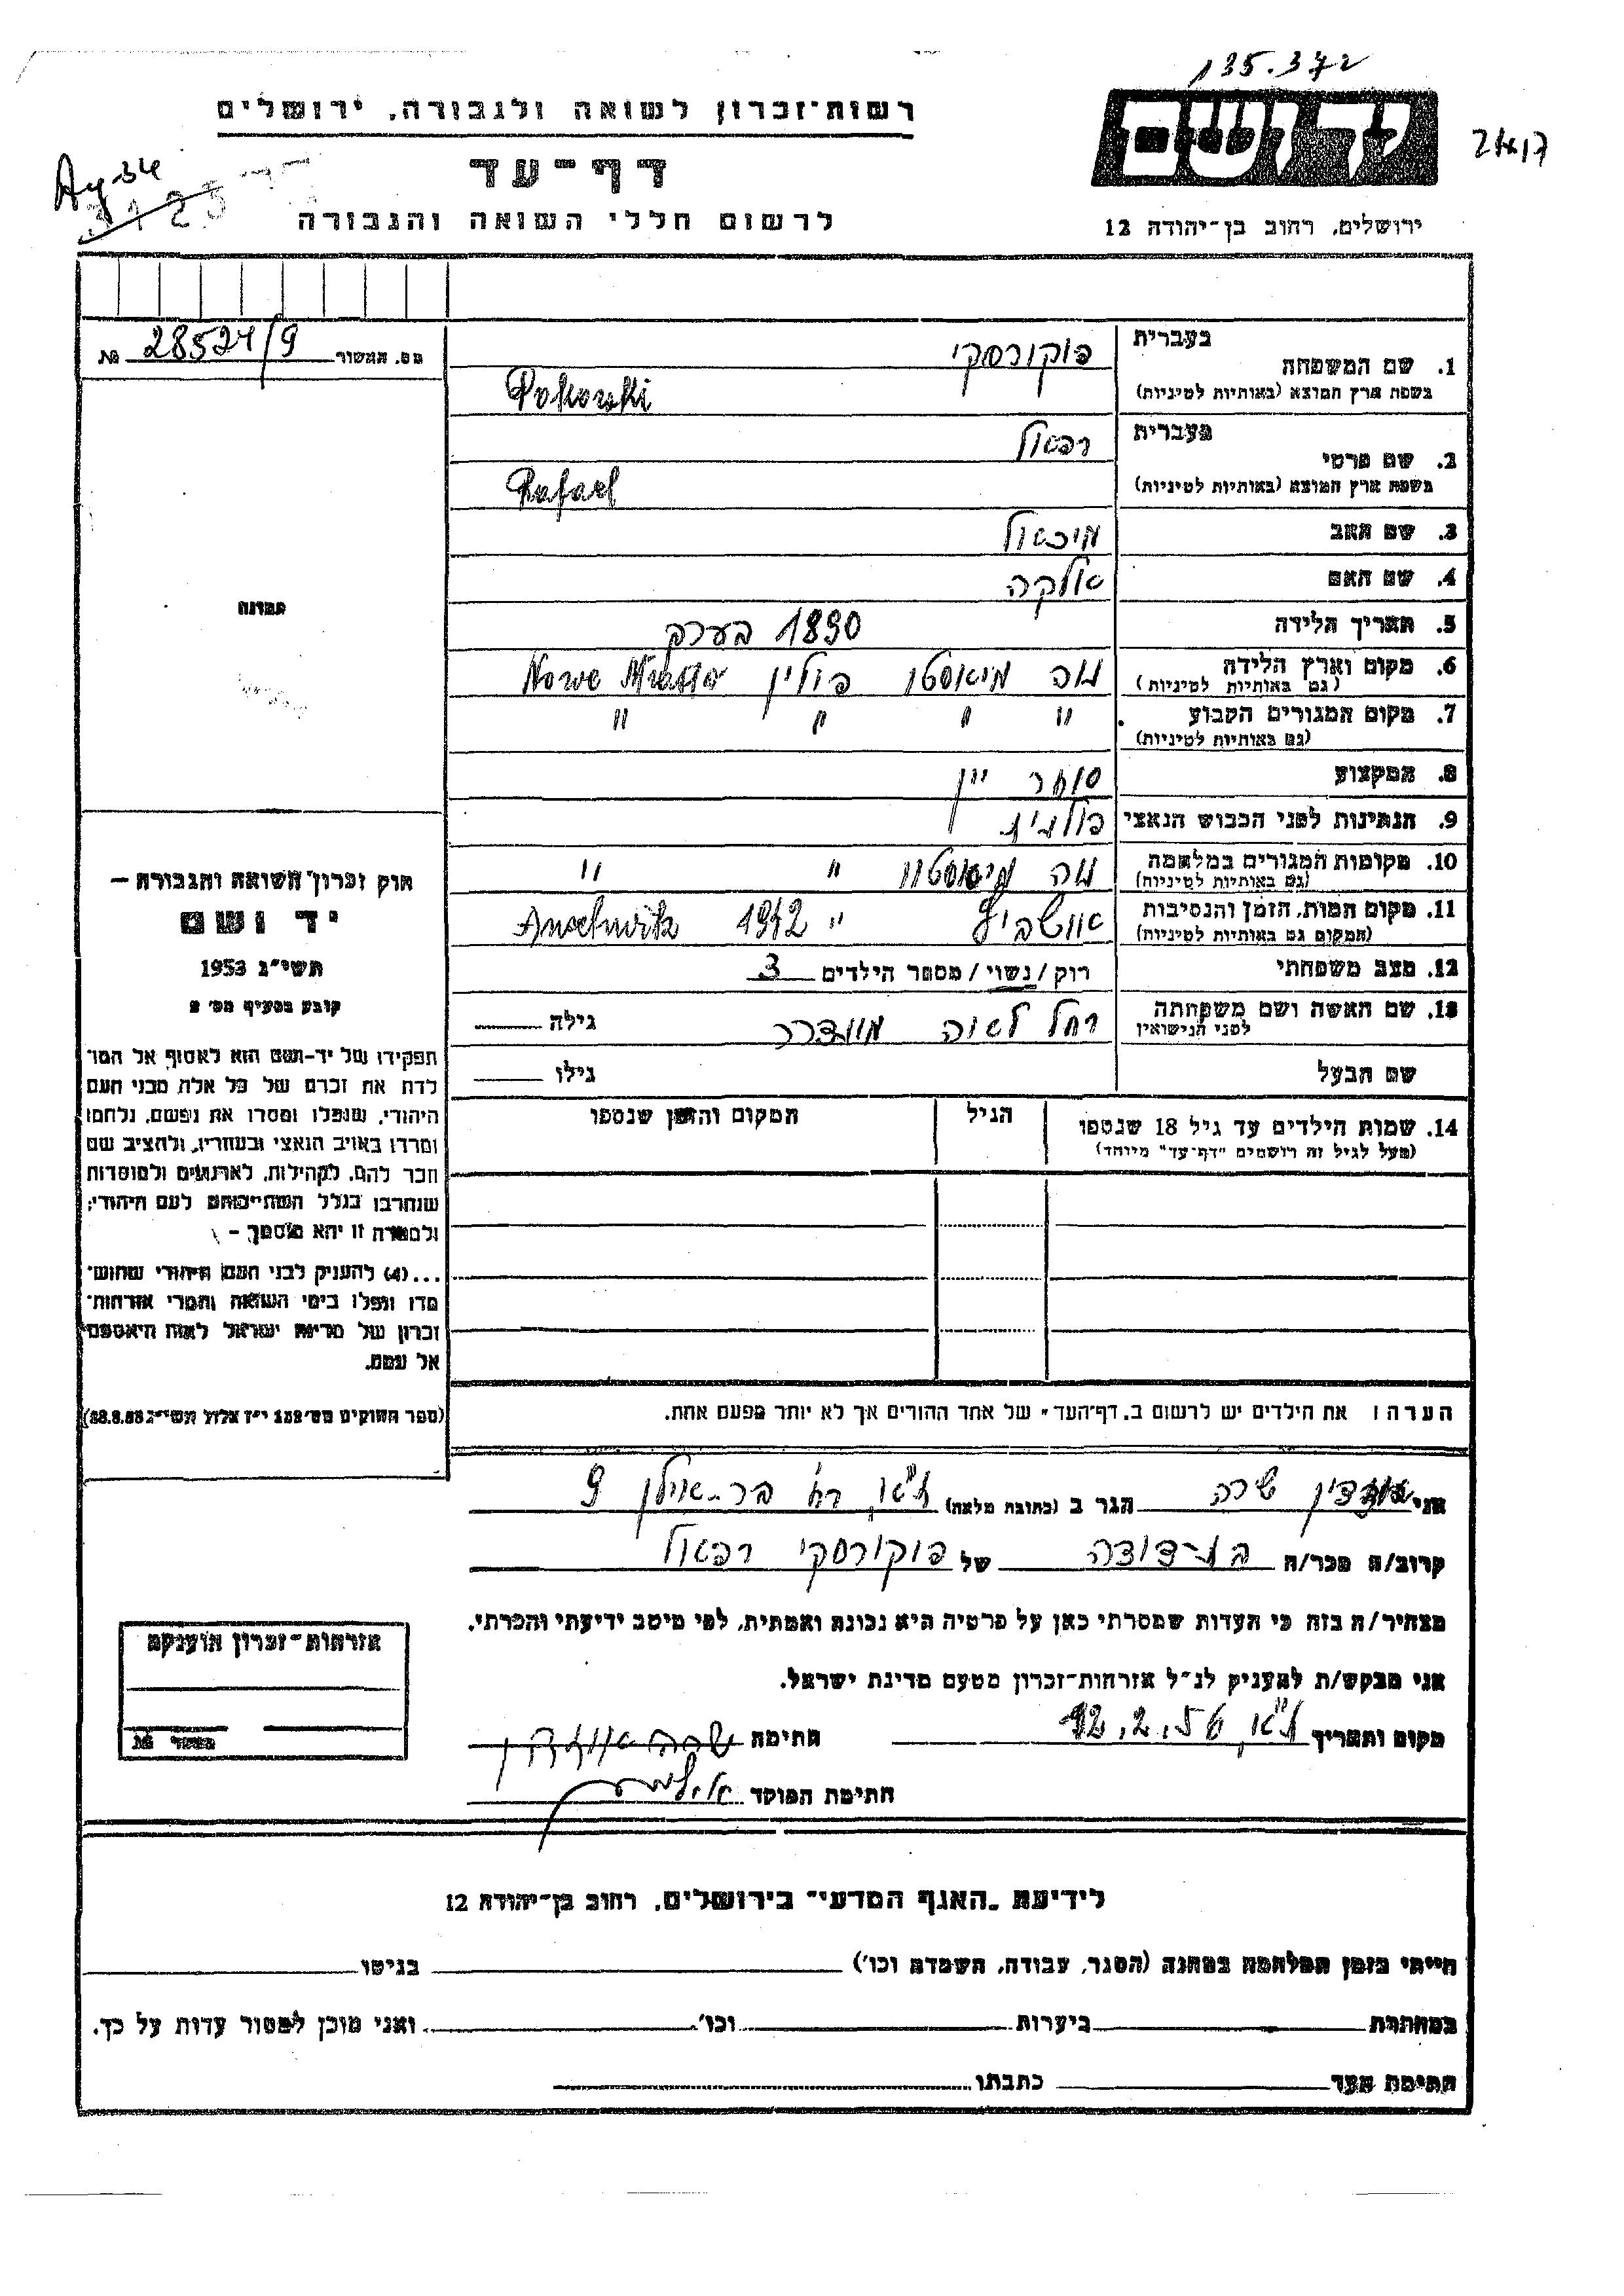 135.372
רשות־זכרון לשואה ולגבורה, ירושלים
דף־עד
לרשום חללי השואה והגבורה
ירושלים, רחוב בן־יהודה 12
מס. המשור № 28524/9
1. שם המשפחה בעברית פוקורסקי
בשפת ארץ המוצא (באותיות לטיניות) Pokorski
2. שם פרטי בעברית רפאול
בשפת ארץ המוצא (באותיות לטיניות) Rafael
3. שם האב מיכאול
4. שם האם אלקה
5. תאריך הלידה 1890 בערך
6. מקום וארץ הלידה נוה מיאסטו פולין Nowe Miasto
(גם באותיות לטיניות)
7. מקום המגורים הקבוע " " " "
(גם באותיות לטיניות)
8. המקצוע סוחר יין
9. הנתינות לפני הכבוש הנאצי פולנית
10. מקומות המגורים במלחמה נוה מיאסטו " "
(גם באותיות לטיניות)
11. מקום המות, הזמן והנסיבות אושביץ " 1942 Auschwitz
(המקום גם באותיות לטיניות)
12. מצב משפחתי רוק / נשוי / מספר הילדים 3
13. שם האשה ושם משפחתה רחל לאה גילה
לפני הנישואין
שם הבעל גילו
14. שמות הילדים עד גיל 18 שנספו הגיל המקום והזמן שנספו
(מעל לגיל זה רושמים "דף־עד" מיוחד)
הערה: את הילדים יש לרשום ב"דף־העד" של אחד ההורים אך לא יותר מפעם אחת.
תמונה
חוק זכרון השואה והגבורה —
יד ושם
תשי"ג 1953
קובע בסעיף מס' 2
תפקידו של יד־ושם הוא לאסוף אל המו־
לדת את זכרם של כל אלה מבני העם
היהודי, שנפלו ומסרו את נפשם, נלחמו
ומרדו באויב הנאצי ובעוזריו, ולהציב שם
וזכר להם, לקהילות, לארגונים ולמוסדות
שנחרבו בגלל השתייכותם לעם היהודי;
ולמטרה זו יהא מוסמך —
...(4) להעניק לבני העם היהודי שהוש־
מדו ונפלו בימי השואה והמרי אזרחות־
זכרון של מדינת ישראל לאות היאספם
אל עמם.
(ספר החוקים מס' 132 י"ז אלול תשי"ג 28.8.53)
אני שרה הגר ב (כתובת מלאה) ת"א, רח' בר־אילן 9
קרוב/ה מכר/ה בת־דודה של פוקורסקי רפאול
מצהיר/ה בזה כי העדות שמסרתי כאן על פרטיה היא נכונה ואמתית, לפי מיטב ידיעתי והכרתי.
אני מבקש/ת להעניק לנ"ל אזרחות־זכרון מטעם מדינת ישראל.
מקום ותאריך ת"א, 12.2.56 חתימה שרה
חתימת הפוקד
אזרחות־זכרון הוענקה
№
לידיעת "האגף המדעי" בירושלים, רחוב בן־יהודה 12
הייתי בזמן המלחמה במחנה (הסגר, עבודה, השמדה וכו') בגיטו
במחתרת ביערות וכו'. ואני מוכן למסור עדות על כך.
חתימת העד כתבתו